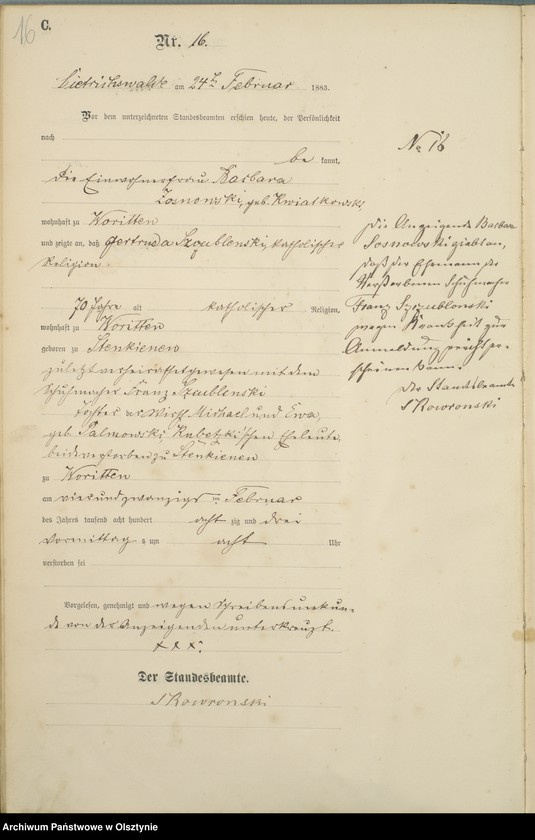 16
C.
Nr. 16.
Dietrichswalde am 24ten Februar 1883.
Vor dem unterzeichneten Standesbeamten erschien heute, der Persönlichkeit
nach
be kannt,
die Einwohnerfrau Barbara
Sosnowski, geb. Kwiatkowski
wohnhaft zu Woritten
und zeigte an, daß Gertruda Szublenski, katholischer
Religion
70 Jahre alt katholischer Religion,
wohnhaft zu Woritten
geboren zu Stenkienen
zuletzt verheirathet gewesen mit dem
Schuhmacher Franz Szublenski
Tochter der Wirth Michael und Ewa,
geb. Palmowski, Kubetzkischen Eheleute,
beide verstorben zu Stenkienen
zu Woritten
am vierundzwanzigs ten Februar
des Jahres tausend acht hundert acht zig und drei
Vormittag s um acht Uhr
verstorben sei
Vorgelesen, genehmigt und wegen Schreibensunkun-
de von der Anzeigenden unterkreuzt.
x x x.
Der Standesbeamte.
Skowronski
No 16
Die Anzeigende Barbara
Sosnowski giebt an,
daß der Ehemann der
Verstorbenen Schuhmacher
Franz Szublenski
wegen Krankheit zur
Anmeldung nicht er-
scheinen kann.
Der Standesbeamte
Skowronski
Archiwum Państwowe w Olsztynie